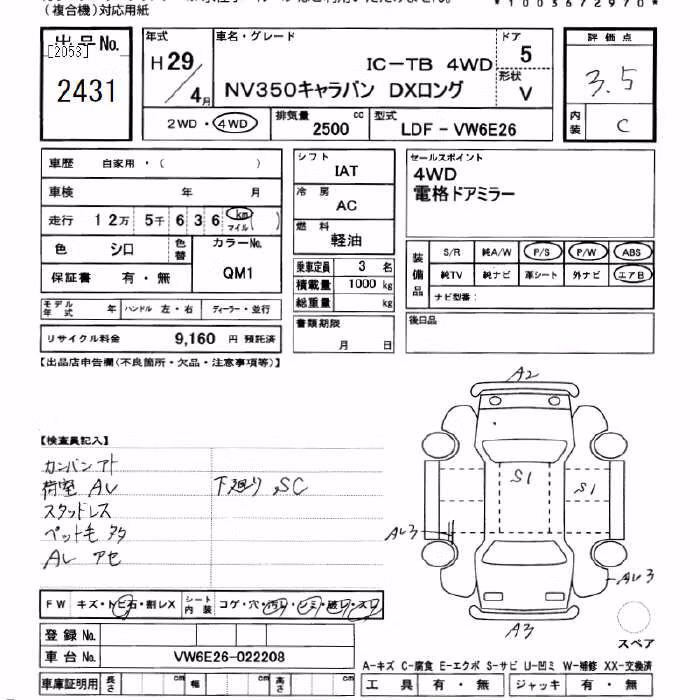 (複合機)対応用紙
*10036729 70*
出品No.
[2053]
2431
年式
H29/4月
車名・グレード
IC-TB 4WD
NV350キャラバン DXロング
ドア
5
形状
V
評価点
3.5
内装
C
2WD・4WD
排気量
2500 cc
型式
LDF-VW6E26
車歴 自家用・( )
車検 年 月
走行 12万 5千 6 3 6 km マイル ( )
色 シロ
色替
カラーNo.
QM1
保証書 有・無
モデル年式 年 ハンドル 左・右 ディーラー・並行
リサイクル料金 9,160 円 預託済
シフト
IAT
冷房
AC
燃料
軽油
乗車定員 3 名
積載量 1000 kg
総重量 kg
書類期限
月 日
セールスポイント
4WD
電格ドアミラー
装備品
S/R 純A/W P/S P/W ABS
純TV 純ナビ 革シート 外ナビ エアB
ナビ型番:
後日品
【出品店申告欄(不良箇所・欠品・注意事項等)】
【検査員記入】
カンバンアト
荷室 AU
下廻り SC
スタッドレス
ペット毛
AU アセ
A2
S1
S1
AU3
AU3
A3
スペア
FW キズ・トビ石・割レX
シート内装 コゲ・穴・汚レ・シミ・破レ・スレ
登録No.
車台No. VW6E26-022208
車庫証明用 長さ cm 幅 cm 高さ cm
A-キズ C-腐食 E-エクボ S-サビ U-凹ミ W-補修 XX-交換済
工具 有・無 ジャッキ 有・無